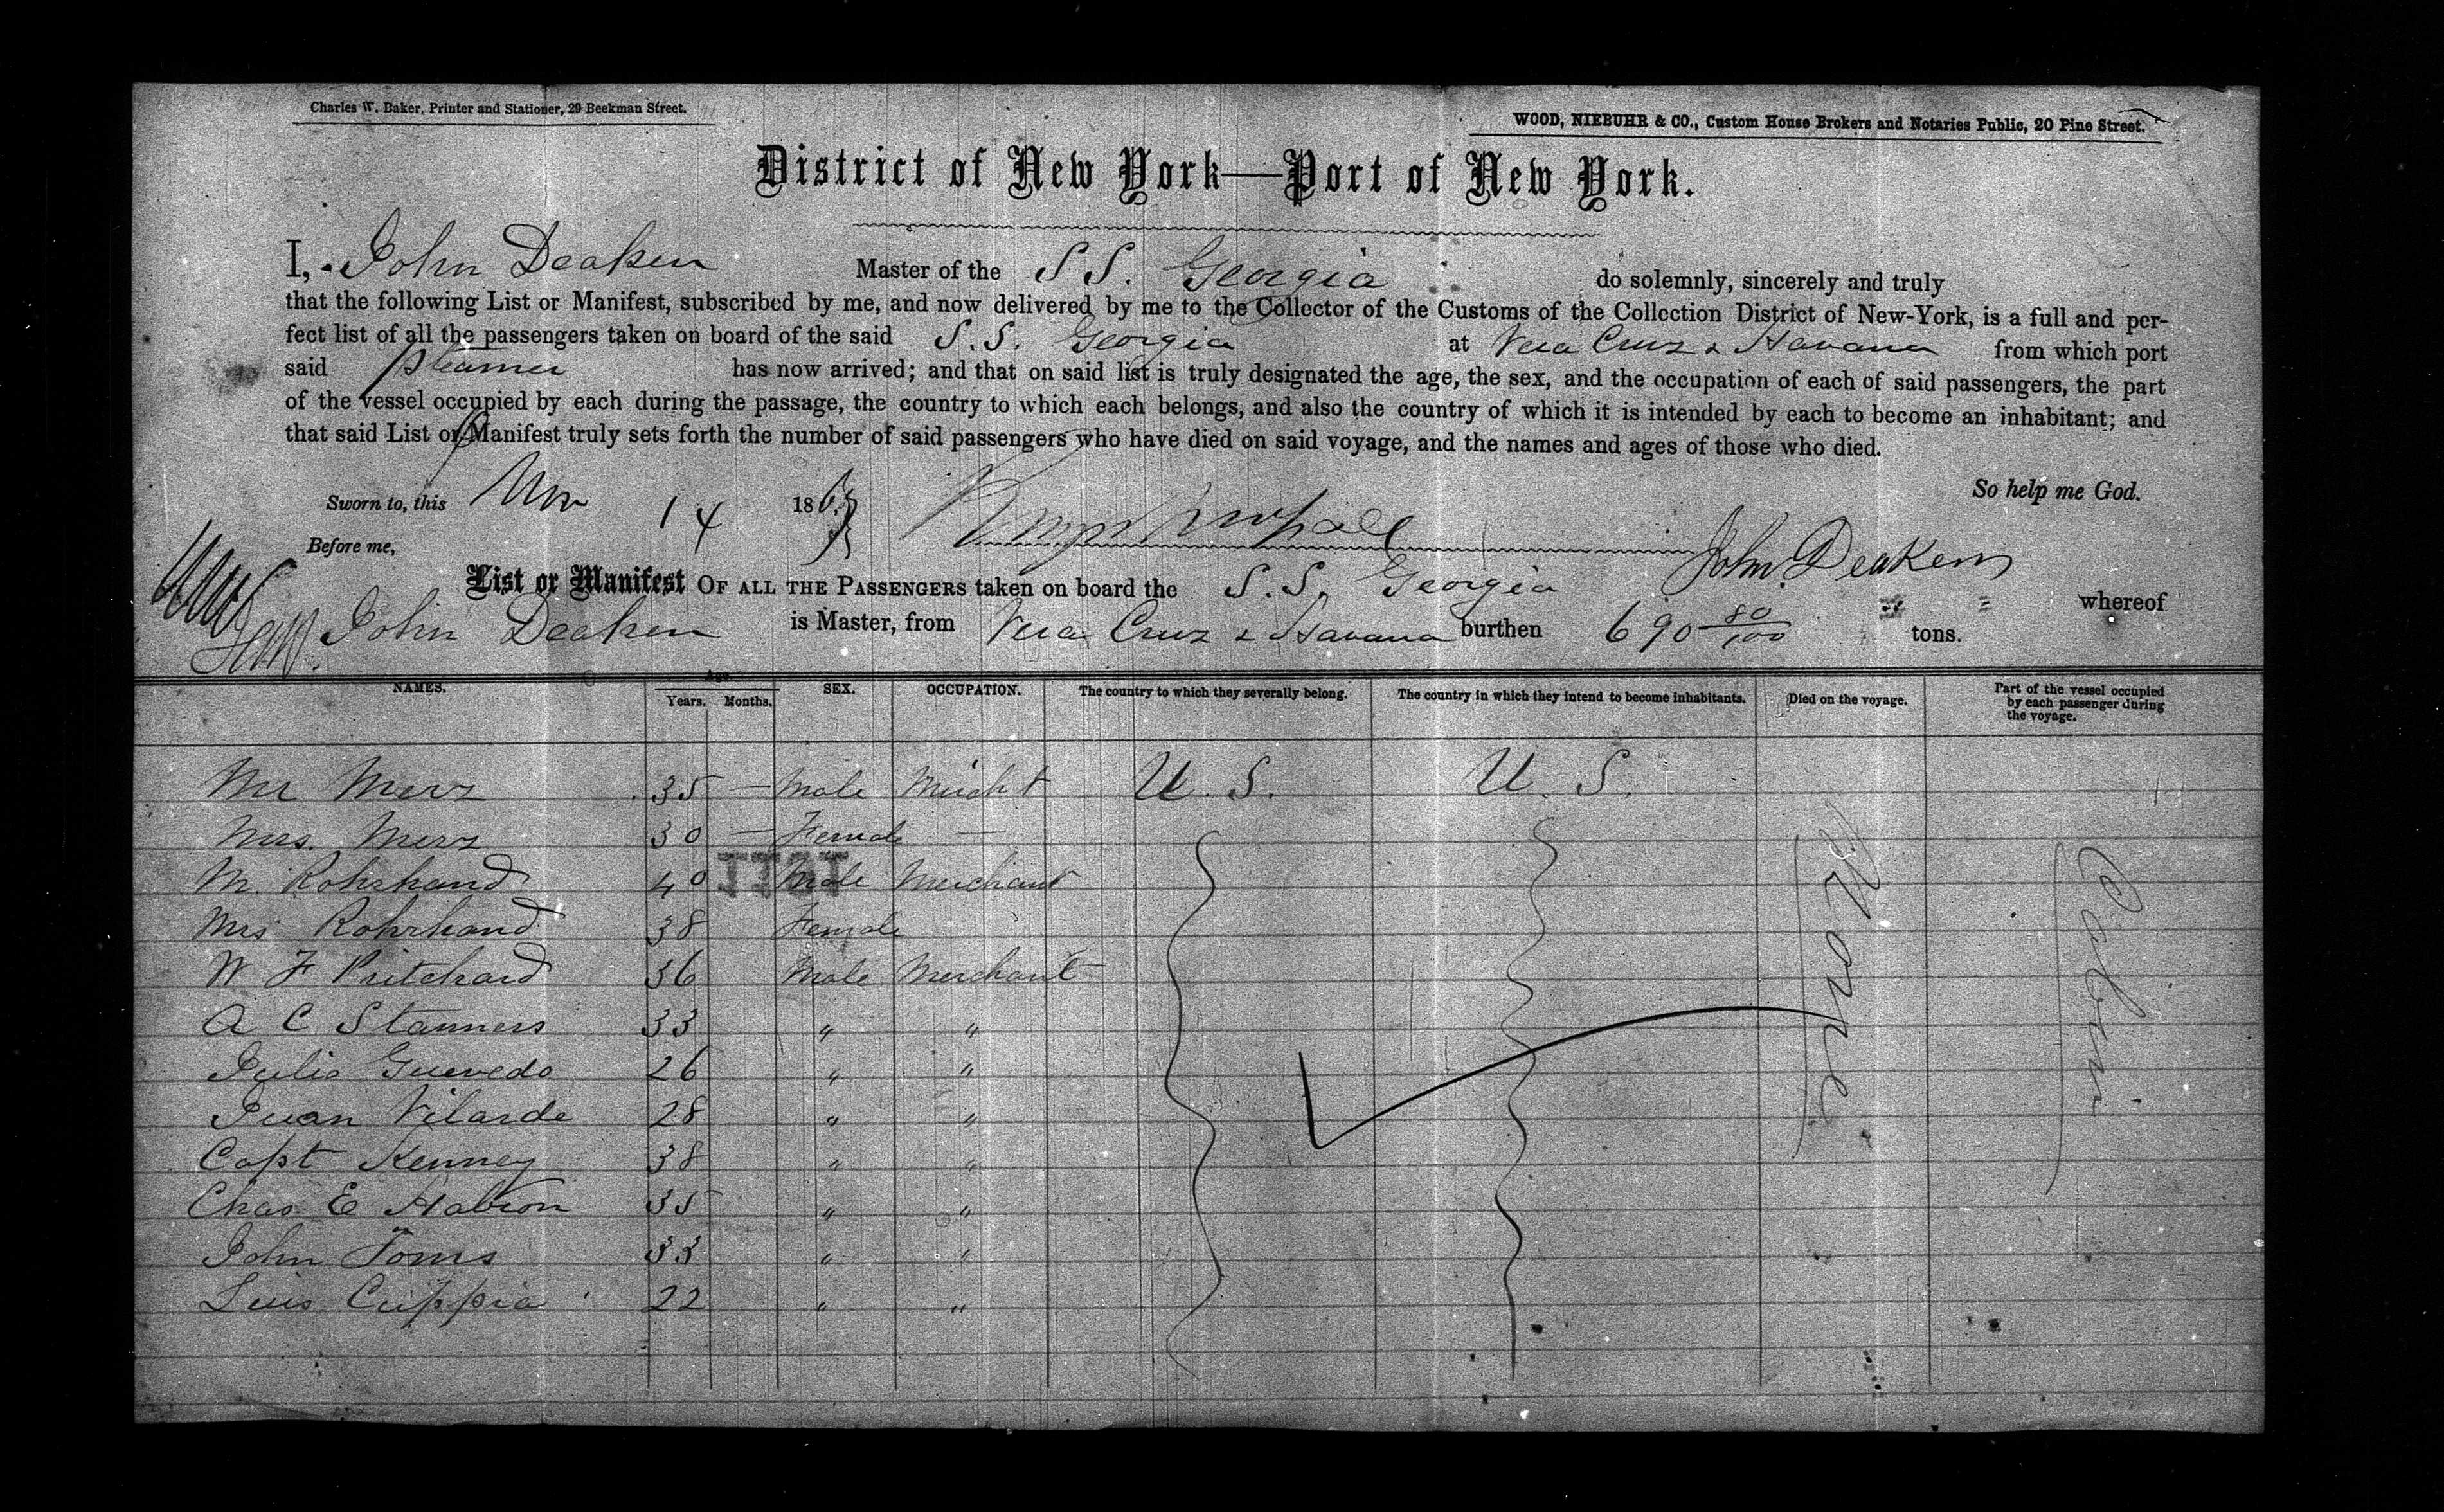 Charles W. Baker, Printer and Stationer, 29 Beekman Street.
WOOD, NIEBUHR & CO., Custom House Brokers and Notaries Public, 20 Pine Street.
District of New York—Port of New York.
I, John Deaken Master of the S S. Georgia do solemnly, sincerely and truly
that the following List or Manifest, subscribed by me, and now delivered by me to the Collector of the Customs of the Collection District of New-York, is a full and per-
fect list of all the passengers taken on board of the said S. S. Georgia at Vera Cruz & Havana from which port
said Steamer has now arrived; and that on said list is truly designated the age, the sex, and the occupation of each of said passengers, the part
of the vessel occupied by each during the passage, the country to which each belongs, and also the country of which it is intended by each to become an inhabitant; and
that said List or Manifest truly sets forth the number of said passengers who have died on said voyage, and the names and ages of those who died.
So help me God.
Sworn to, this Nov 14 186
Before me,
John Deaken
List or Manifest OF ALL THE PASSENGERS taken on board the S. S. Georgia whereof
John Deaken is Master, from Vera Cruz & Havana burthen 690 80/100 tons.
NAMES. Age Years. Months. SEX. OCCUPATION. The country to which they severally belong. The country in which they intend to become inhabitants. Died on the voyage. Part of the vessel occupied by each passenger during the voyage.
Mr Merz 35 — Male Mercht U. S. U. S.
Mrs. Merz 30 — Female —
M. Rohrhand 40 Male Merchant
Mrs Rohrhand 38 Female
W F Pritchard 36 Male Merchant
A C Stanners 33 " "
Julio Guevedo 26 " "
Juan Vilarde 28 " "
Capt Kenney 38 " "
Chas E Habron 35 " "
John Toms 33 " "
Luis Cuppia 22 " "
None
Cabin